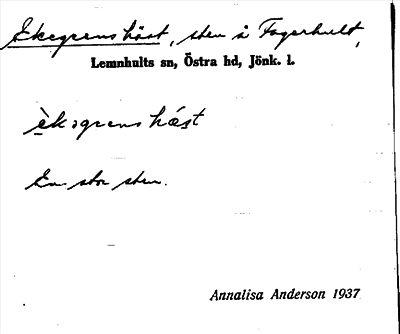 Ekegrens häst, sten å Fagerhult,
Lemnhults sn, Östra hd, Jönk. l.
èkəgrens hást
En stor sten.
Annalisa Anderson 1937